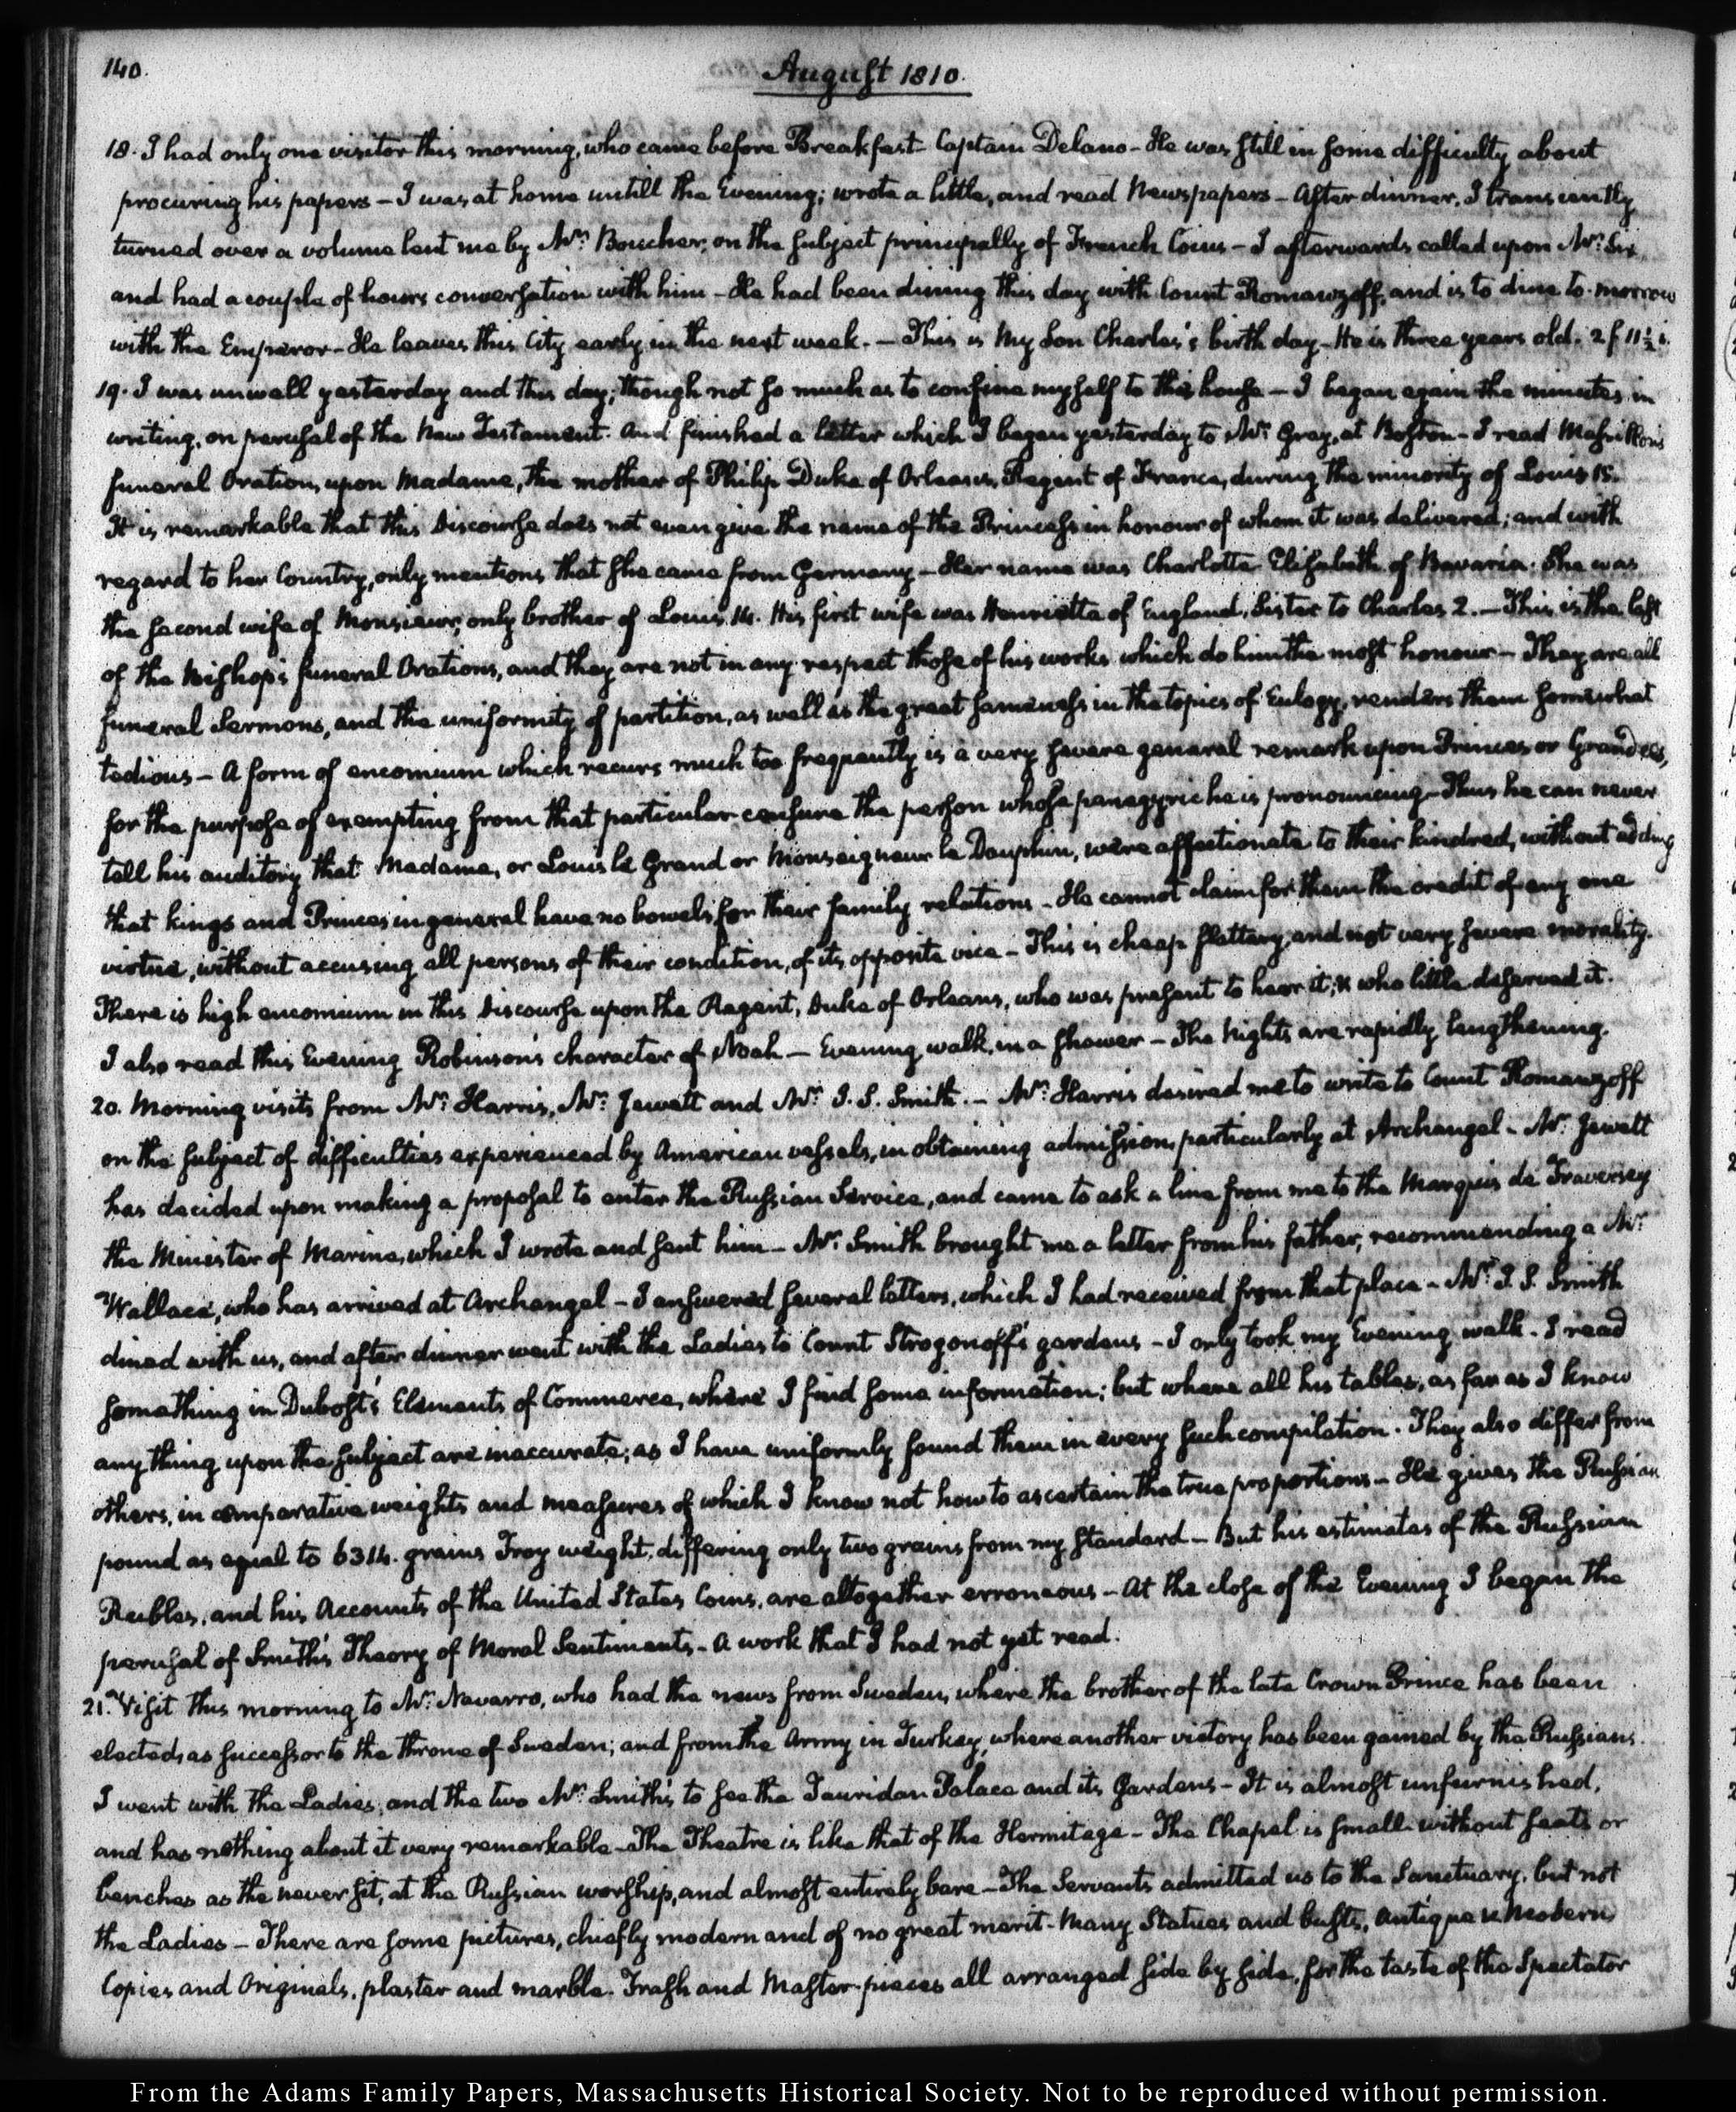 140.
August 1810.
18. I had only one visitor this morning, who came before Breakfast. Captain Delano – He was still in some difficulty about
procuring his papers – I was at home untill the Evening; wrote a little, and read Newspapers – After dinner, I transiently
turned over a volume lent me by Mr: Boucher, on the subject principally of French Coins – I afterwards called upon Mr: Six
and had a couple of hours conversation with him – He had been dining this day with Count Romanzoff, and is to dine to-morrow
with the Emperor – He leaves this City early in the next week. – This is My Son Charles's birth day – He is three years old. 2 f 11½ i.
19. I was unwell yesterday and this day; though not so much as to confine myself to the house – I began again the minutes in
writing, on perusal of the New Testament. And finished a letter which I began yesterday to Mr: Gray, at Boston – I read Massillon's
funeral Oration, upon Madame, the mother of Philip Duke of Orleans, Regent of France, during the minority of Louis 15.
It is remarkable that this Discourse does not even give the name of the Princess in honour of whom it was delivered; and with
regard to her Country, only mentions that she came from Germany – Her name was Charlotte Elisabeth of Bavaria. She was
the second wife of Monsieur, only brother of Louis 14. His first wife was Henrietta of England, Sister to Charles 2. – This is the last
of the Bishop's funeral Orations, and they are not in any respect those of his works which do him the most honour – They are all
funeral Sermons, and the uniformity of partition, as well as the great sameness in the topics of Eulogy, renders them somewhat
tedious – A form of encomium which recurs much too frequently is a very severe general remark upon Princes or Grandees,
for the purpose of exempting from that particular censure the person whose panegyric he is pronouncing – Thus he can never
tell his auditory that Madame, or Louis le Grand or Monseigneur le Dauphin, were affectionate to their kindred, without adding
that kings and Princes in general have no bowels for their family relations – He cannot claim for them the credit of any one
virtue, without accusing all persons of their condition, of its opposite vice – This is cheap flattery, and not very severe morality.
There is high encomium in this Discourse upon the Regent, Duke of Orleans, who was present to hear it; & who little deserved it.
I also read this Evening Robinson's character of Noah – Evening walk, in a shower – The Nights are rapidly lengthening.
20. Morning visits from Mr: Harris, Mr: Jewett and Mr: J. S. Smith. – Mr: Harris desired me to write to Count Romanzoff
on the subject of difficulties experienced by American vessels, in obtaining admission, particularly at Archangel – Mr: Jewett
has decided upon making a proposal to enter the Russian Service, and came to ask a line from me to the Marquis de Traversey
the Minister of Marine, which I wrote and sent him – Mr: Smith brought me a letter from his father, recommending a Mr:
Wallace, who has arrived at Archangel – I answered several letters, which I had received from that place – Mr: J. S. Smith
dined with us, and after dinner went with the Ladies to Count Strogonoff's gardens – I only took my Evening walk. I read
something in Dubost's Elements of Commerce, where I find some information; but where all his tables, as far as I know
any thing upon the subject are inaccurate; as I have uniformly found them in every such compilation. They also differ from
others, in comparative weights and measures of which I know not how to ascertain the true proportions – He gives the Russian
pound as equal to 6314. grains Troy weight. differing only two grains from my standard – But his estimates of the Russian
Rubles, and his Accounts of the United States Coins, are altogether erroneous – At the close of the Evening I began the
perusal of Smith's Theory of Moral Sentiments – A work that I had not yet read.
21. Visit this morning to Mr: Navarro, who had the news from Sweden, where the brother of the late Crown Prince has been
elected, as successor to the throne of Sweden; and from the Army in Turkey, where another victory has been gained by the Russians.
I went with the Ladies, and the two Mr: Smith's to see the Tauridan Palace and its Gardens – It is almost unfurnished,
and has nothing about it very remarkable – The Theatre is like that of the Hermitage – The Chapel is small without seats or
benches as the never sit, at the Russian worship, and almost entirely bare – The Servants admitted us to the Sanctuary, but not
the Ladies – There are some pictures, chiefly modern and of no great merit. Many Statues and busts, Antique & Modern,
Copies and Originals, plaster and marble. Trash and Master-pieces all arranged side by side, for the taste of the Spectator
From the Adams Family Papers, Massachusetts Historical Society. Not to be reproduced without permission.